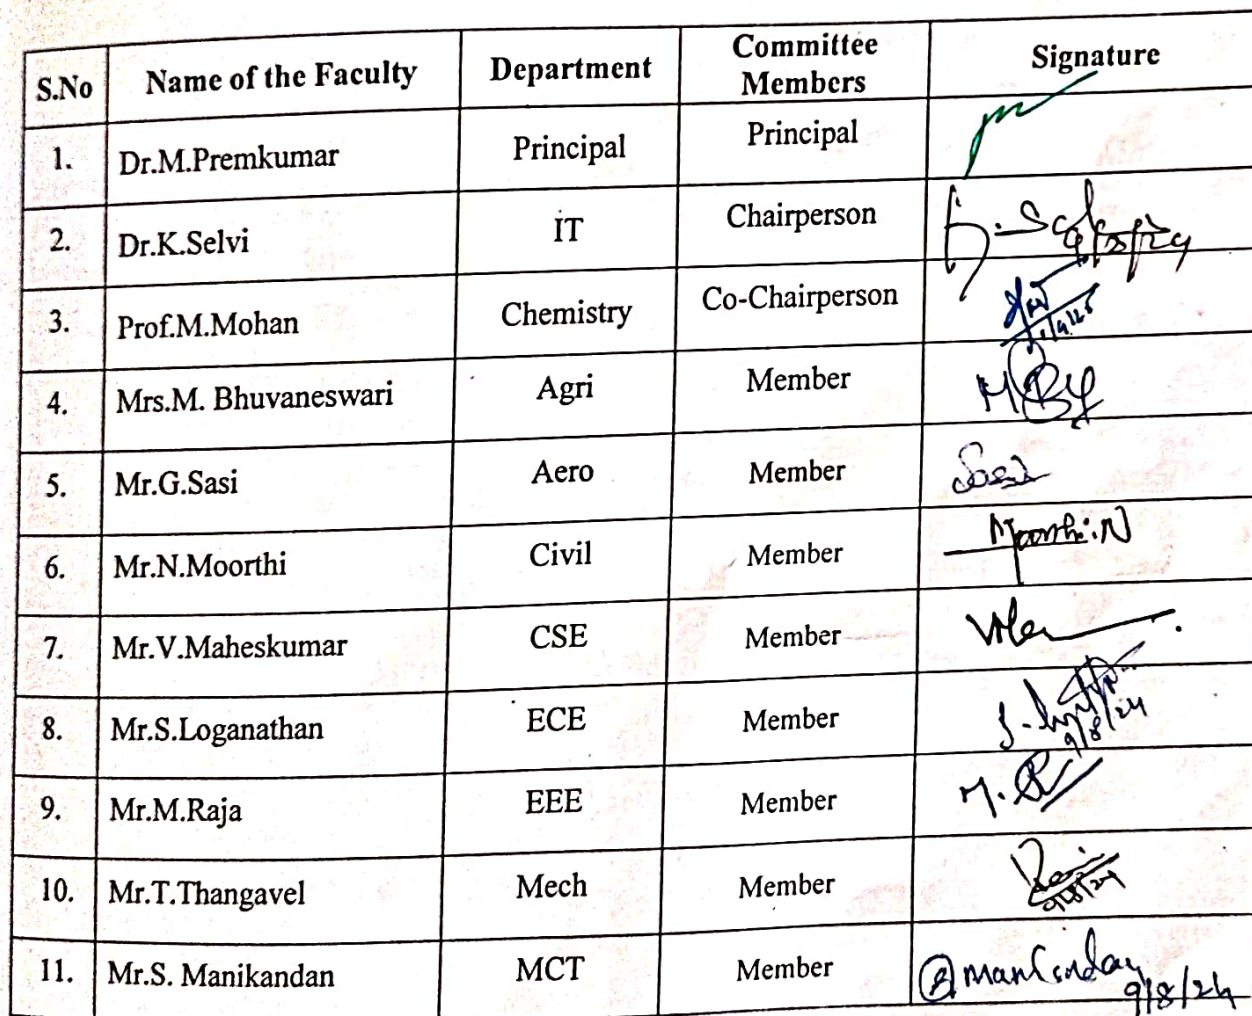 S.No Name of the Faculty Department Committee Members Signature
1. Dr.M.Premkumar Principal Principal
2. Dr.K.Selvi IT Chairperson 9/8/24
3. Prof.M.Mohan Chemistry Co-Chairperson
4. Mrs.M. Bhuvaneswari Agri Member
5. Mr.G.Sasi Aero Member Sasi
6. Mr.N.Moorthi Civil Member Moorthi.N
7. Mr.V.Maheskumar CSE Member
8. Mr.S.Loganathan ECE Member 9/8/24
9. Mr.M.Raja EEE Member
10. Mr.T.Thangavel Mech Member 9/8/24
11. Mr.S. Manikandan MCT Member 9/8/24